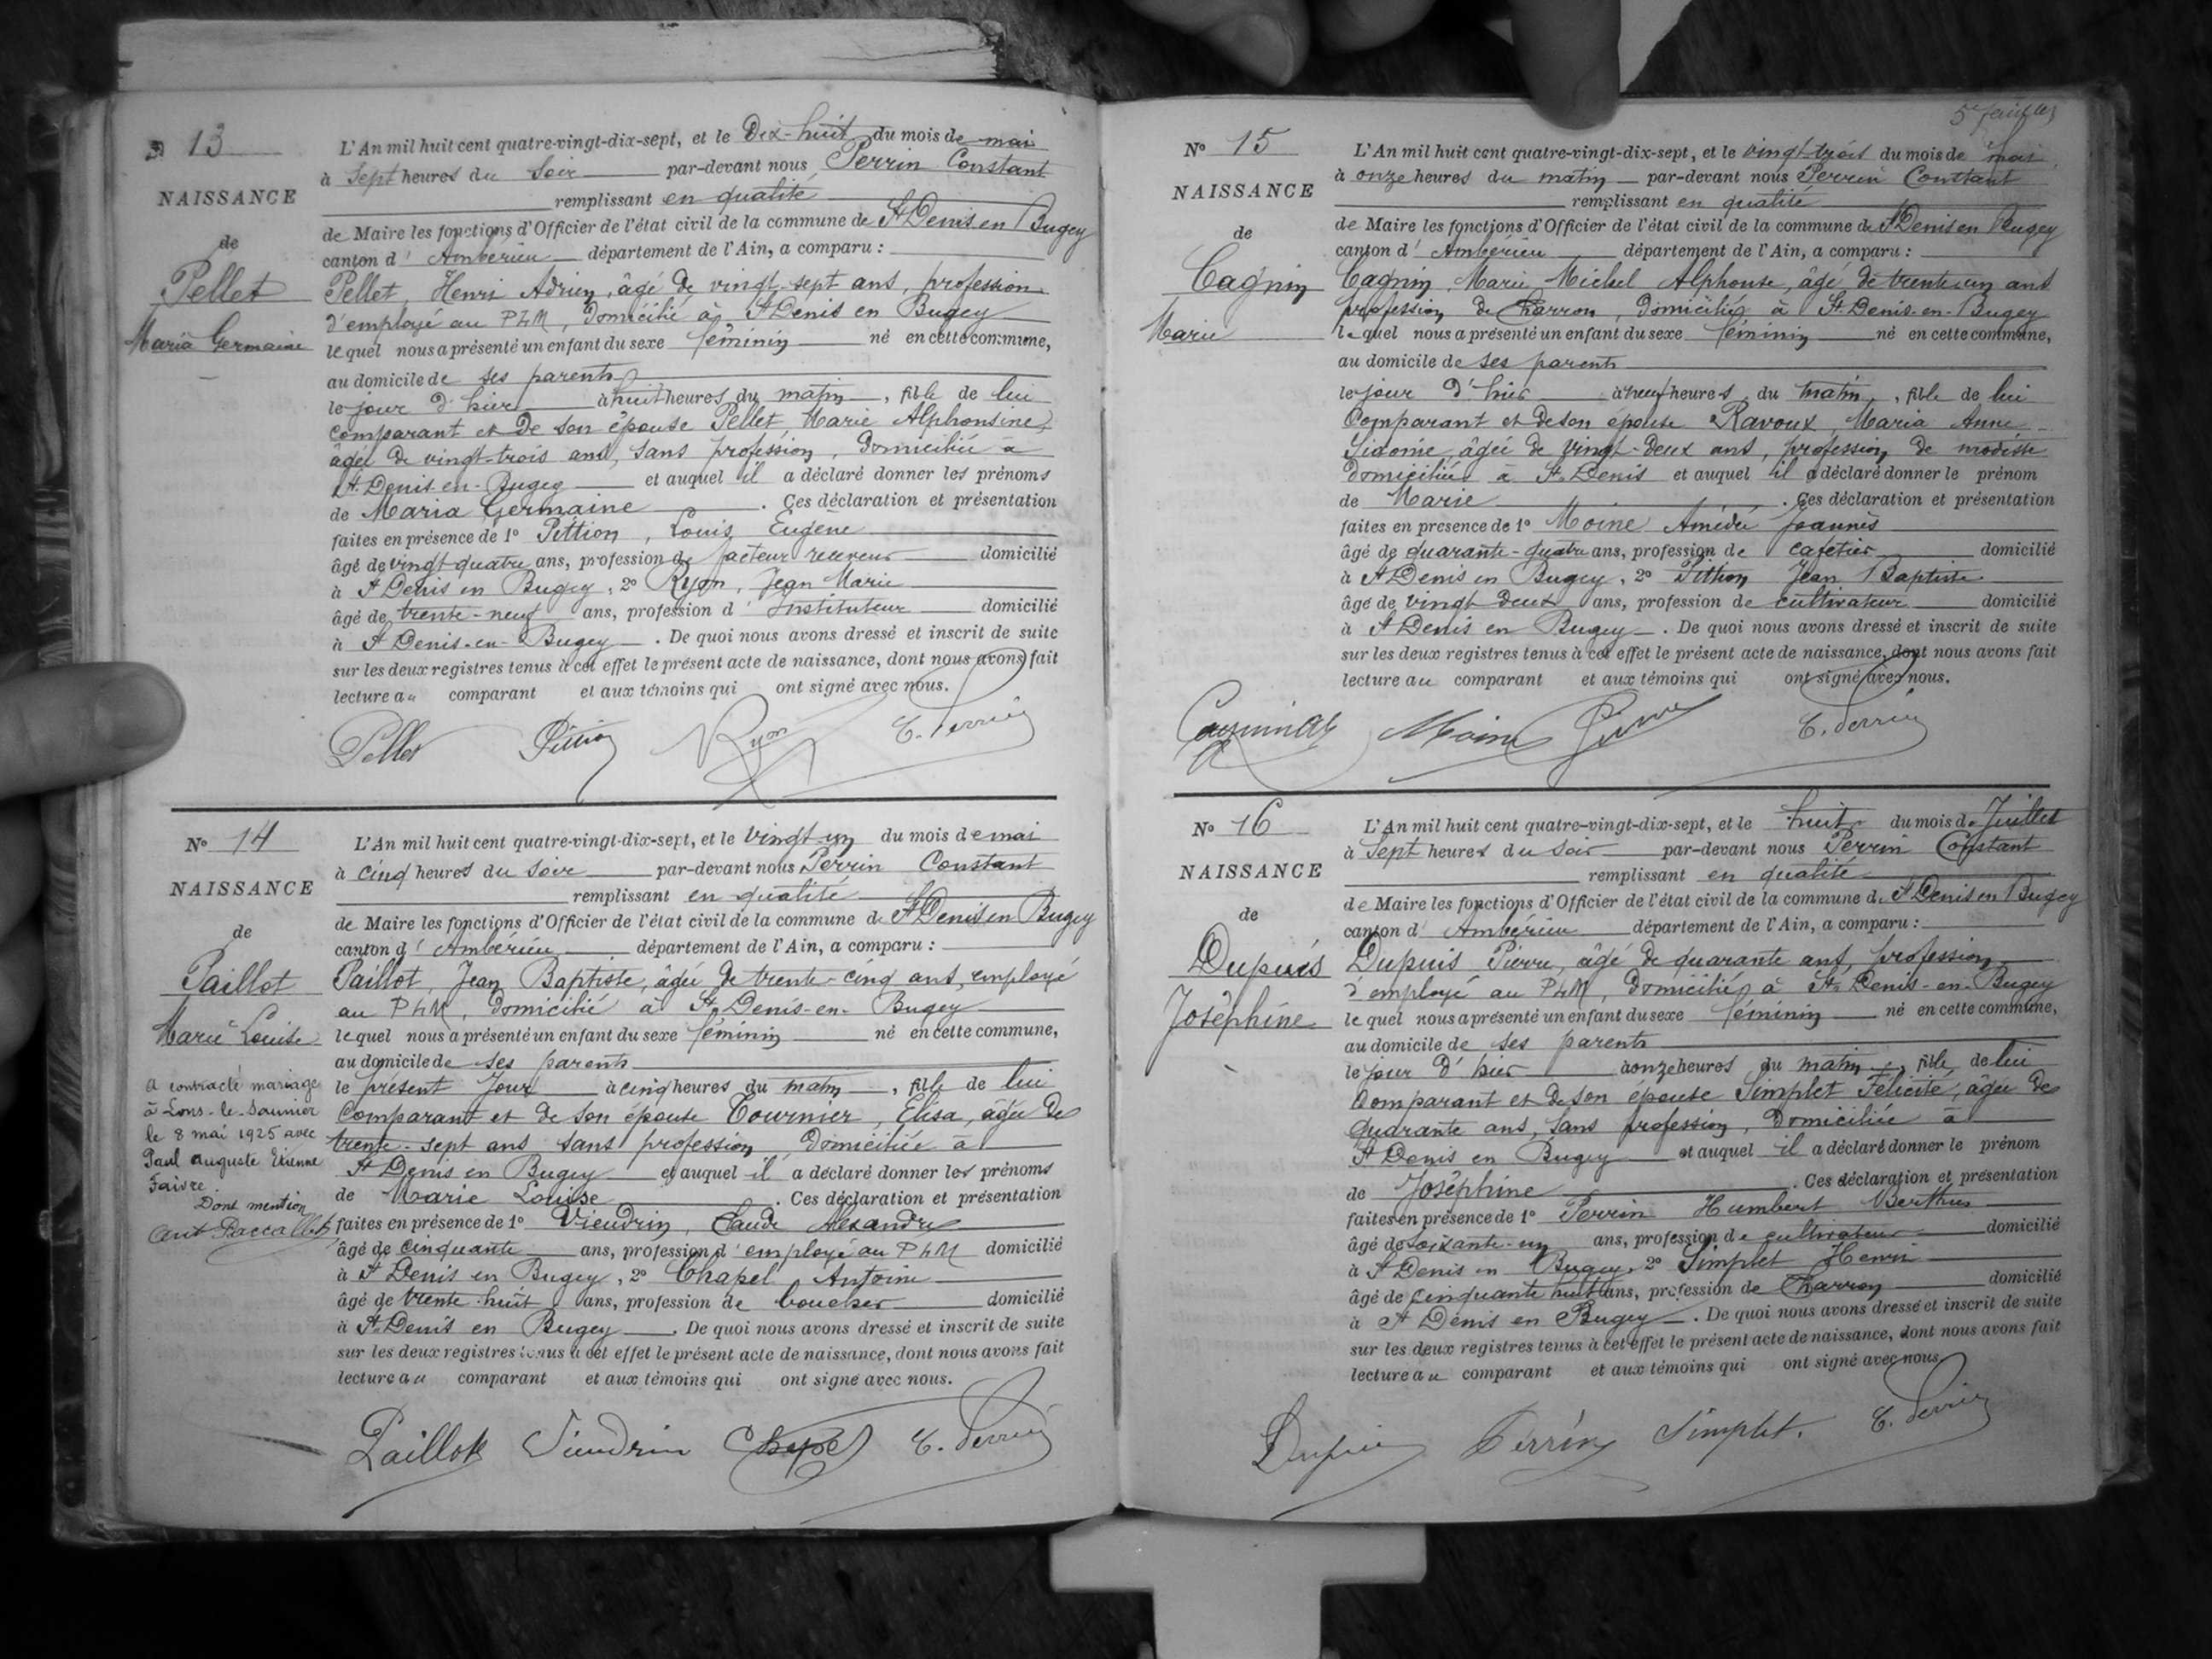 N° 13
NAISSANCE
de
Pellet
Maria Germaine
L'An mil huit cent quatre-vingt-dix-sept, et le Dix-huit du mois de mai
à sept heures du soir par-devant nous Perrin Constant
remplissant en qualité
de Maire les fonctions d'Officier de l'état civil de la commune de St Denis en Bugey
canton d' Ambérieu département de l'Ain, a comparu :
Pellet, Henri Adrien, âgé de vingt-sept ans, profession
d'employé au PLM, domicilié à St Denis en Bugey
lequel nous a présenté un enfant du sexe féminin né en cette commune,
au domicile de ses parents
le jour d'hier à huit heures du matin, fille de lui
comparant et de son épouse Pellet, Marie Alphonsine,
âgée de vingt-trois ans, sans profession, domiciliée à
St Denis-en-Bugey et auquel il a déclaré donner les prénoms
de Maria Germaine. Ces déclaration et présentation
faites en présence de 1° Pittion, Louis Eugène
âgé de vingt quatre ans, profession de facteur receveur domicilié
à St Denis en Bugey, 2° Ryon, Jean Marie
âgé de trente-neuf ans, profession d' Instituteur domicilié
à St Denis-en-Bugey. De quoi nous avons dressé et inscrit de suite
sur les deux registres tenus à cet effet le présent acte de naissance, dont nous avons fait
lecture au comparant et aux témoins qui ont signé avec nous.
Pellet Pittion Ryon C. Perrin
N° 14
NAISSANCE
de
Paillot
Marie Louise
a contracté mariage
à Lons-le-Saunier
le 8 mai 1925 avec
Paul Auguste Etienne
Faivre.
Dont mention
L'An mil huit cent quatre-vingt-dix-sept, et le vingt-un du mois de mai
à cinq heures du soir par-devant nous Perrin Constant
remplissant en qualité
de Maire les fonctions d'Officier de l'état civil de la commune de St Denis en Bugey
canton d' Ambérieu département de l'Ain, a comparu :
Paillot, Jean Baptiste, âgée de trente-cinq ans, employé
au PLM, domicilié à St Denis-en-Bugey
lequel nous a présenté un enfant du sexe féminin né en cette commune,
au domicile de ses parents
le présent jour à cinq heures du matin, fille de lui
comparant et de son épouse Tournier, Elisa, âgée de
trente-sept ans sans profession, domiciliée à
St Denis en Bugey et auquel il a déclaré donner les prénoms
de Marie Louise. Ces déclaration et présentation
faites en présence de 1° Vieudrin, Claude Alexandre
âgé de cinquante ans, profession d' employé au PLM domicilié
à St Denis en Bugey, 2° Chapel Antoine
âgé de trente-huit ans, profession de boucher domicilié
à St Denis en Bugey. De quoi nous avons dressé et inscrit de suite
sur les deux registres tenus à cet effet le présent acte de naissance, dont nous avons fait
lecture au comparant et aux témoins qui ont signé avec nous.
Paillot Vieudrin Chapel C. Perrin
5e feuillet
N° 15
NAISSANCE
de
Cagnin
Marie
L'An mil huit cent quatre-vingt-dix-sept, et le vingt-trois du mois de mai
à onze heures du matin par-devant nous Perrin Constant
remplissant en qualité
de Maire les fonctions d'Officier de l'état civil de la commune de St Denis en Bugey
canton d' Ambérieu département de l'Ain, a comparu :
Cagnin, Marie Michel Alphonse, âgé de trente-un ans
profession de Charron, domicilié à St Denis-en-Bugey
lequel nous a présenté un enfant du sexe féminin né en cette commune,
au domicile de ses parents
le jour d'hier à neuf heures du matin, fille de lui
comparant et de son épouse Ravoux, Maria Anne
Sidonie, âgée de vingt-deux ans, profession de modiste
domiciliée à St Denis et auquel il a déclaré donner le prénom
de Marie. Ces déclaration et présentation
faites en présence de 1° Moine Amédée Joannès
âgé de quarante-quatre ans, profession de cafetier domicilié
à St Denis en Bugey, 2° Pittion Jean Baptiste
âgé de vingt deux ans, profession de cultivateur domicilié
à St Denis en Bugey. De quoi nous avons dressé et inscrit de suite
sur les deux registres tenus à cet effet le présent acte de naissance, dont nous avons fait
lecture au comparant et aux témoins qui ont signé avec nous.
Moine C. Perrin
N° 16
NAISSANCE
de
Dupuis
Joséphine
L'An mil huit cent quatre-vingt-dix-sept, et le huit du mois de Juillet
à Sept heures du soir par-devant nous Perrin Constant
remplissant en qualité
de Maire les fonctions d'Officier de l'état civil de la commune de St Denis en Bugey
canton d' Ambérieu département de l'Ain, a comparu :
Dupuis Pierre, âgé de quarante ans, profession
d'employé au PLM, domicilié à St Denis-en-Bugey
lequel nous a présenté un enfant du sexe féminin né en cette commune,
au domicile de ses parents
le jour d'hier à onze heures du matin, fille de lui
comparant et de son épouse Simplet Félicité, âgée de
quarante ans, sans profession, domiciliée à
St Denis en Bugey et auquel il a déclaré donner le prénom
de Joséphine. Ces déclaration et présentation
faites en présence de 1° Perrin Humbert Berthus
âgé de soixante-un ans, profession de cultivateur domicilié
à St Denis en Bugey, 2° Simplet Henri
âgé de cinquante huit ans, profession de Charron domicilié
à St Denis en Bugey. De quoi nous avons dressé et inscrit de suite
sur les deux registres tenus à cet effet le présent acte de naissance, dont nous avons fait
lecture au comparant et aux témoins qui ont signé avec nous.
Dupuis Perrin Simplet. C. Perrin